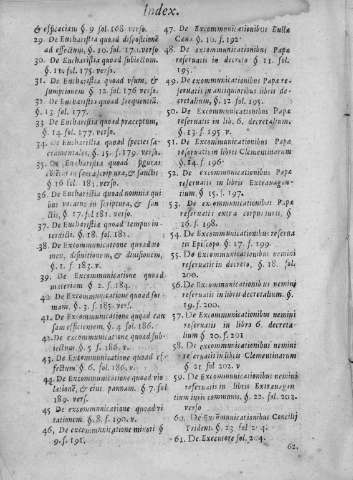 Index.
& especiatim §. 9 fol. 168. verso.
29. De Eucharistia quoad dispositione
ad effectus, §. 10. fol. 170. verso.
30. De Eucharistia quoad subiectum.
§. 11. fol. 175. verso.
31. De Eucharistia quoad vsum, &
sumptionem §. 12. fol. 176 verso.
32. De Eucharistia quoad
§. 13. fol. 177.
33. De Eucharistia quoad praeceptum,
§. 14. fol. 177. verso.
34. De Eucharistia quoad species sa-
cramentales, §. 15. f. 179. verso.
35. De Eucharistia quoad figuras
scriptura, & sanctis
§ 16 fol. 181. verso.
36. De Eucharistia quoad nomina qui
bus vocatur in scriptura, & san
ctis, §. 17. fol 181. verso.
37. De Eucharistia quoad tempus in-
terdicti. §. 18. fol. 181.
38. De Excommunicatione quoad no
men, definitionem, & diuisionem,
§. 1. f. 183. v.
39. De Excommunicatione quoad
materiam § 2. f. 184.
40. De Excommunicatione quoad for-
mam. §. 3. f. 185. vers.
41. De Excommunicatione quoad cau
sam efficientem. §. 4 fol. 186.
42. De Excommunicatione quoad sub-
iectum. §. 5 f. 186. v.
43. De Excommunicatione quoad ef-
fectum § 6. fol. 186. v.
44. De Excommunicatione quoad vio
latione, & eius poenam §. 7. fol.
189. vers.
45 De excommunicatione quoad vi
tationem. §. 8. f. 190. v.
46. De excommunicatione minori §
9. f. 191.
47. De Excommunicationibus Bullae
Cenae §. 10. f. 192
48. De excommunicationibus Papae
reseruatis in decreto § 11. fol.
195.
49. De excommunicationibus Papae re-
seruatis in antiquioribus libris de-
cretalium, § 12. fol. 195.
50. De Excommunicationibus Papae
reseruatis in lib. 6. decretalium,
§. 13. f. 195 v.
51. De Excommunicationibus Papae
reseruatis in libris Clementinarum
§. 14. f. 196
52. De excommunicationibus Papae
reseruatis in libris Extrauagan-
tium § 15. f. 197.
53. De excommunicationibus Papae
reseruatis extra corpus iuris. §
16. f. 198.
54. De Excommunicationibus reserua
tis Episcopo §. 17. f. 199.
55. De Excommunicationibus nemini
reseruatis in decreto, §. 18. fol.
200.
56. De Excommunicationibus nemini
reseruatis in libris decretalium. §.
19. f. 200.
57. De Excommunicationibus nemini
reseruatis in libro 6. decreta
lium § 20. f. 201
58. De excommunicationibus nemini
reseruatis in libris Clementinarum
§ 21 fol 202. v
59. De Excommunicationibus nemini
reseruatis in libris Extrauagan
tium communis, § 22. fol. 203.
verso
60. De Excommunicationibus Concilij
Trident. §. 23 fol 204.
61. De Executore fol. 204.
62.